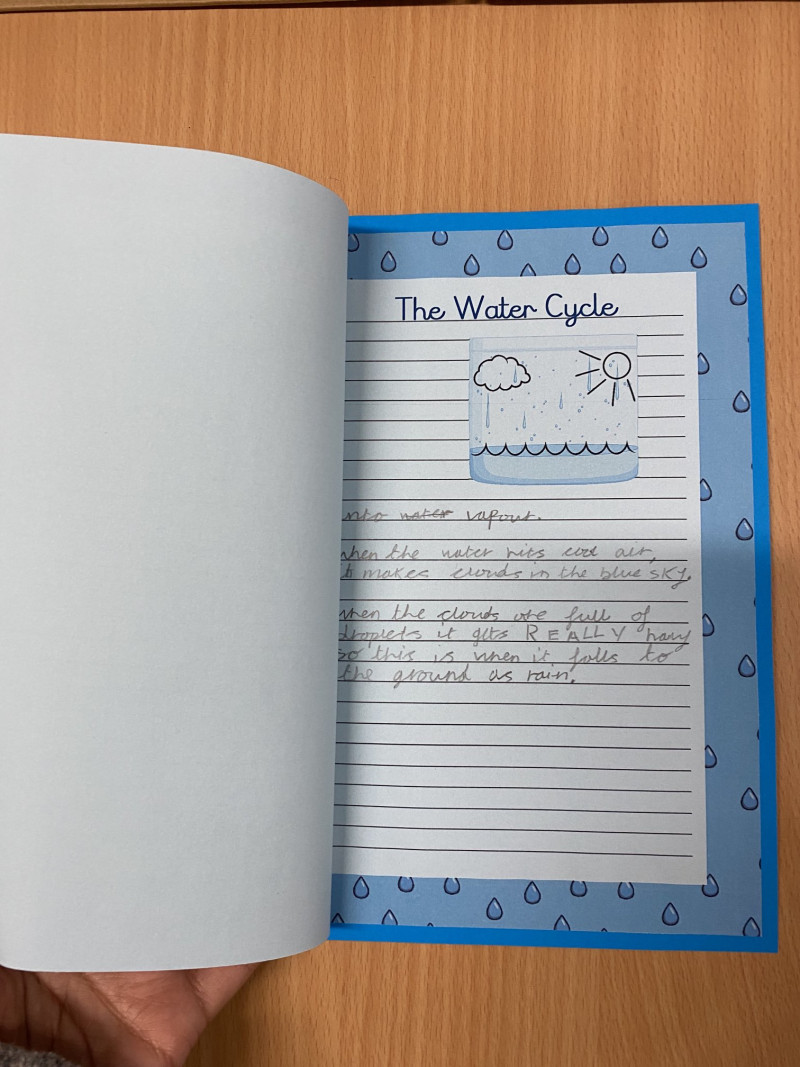 The Water Cycle
into water vapour.
when the water hits cool air,
it makes clouds in the blue sky.
when the clouds are full of
droplets it gets REALLY havy
so this is when it falls to
the ground as rain.